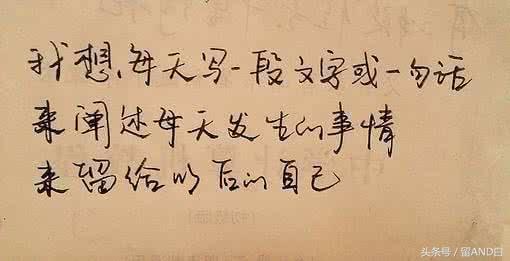 我想,每天写一段文字或一句话
来阐述每天发生的事情
来留给以后的自己
头条号/留AND白